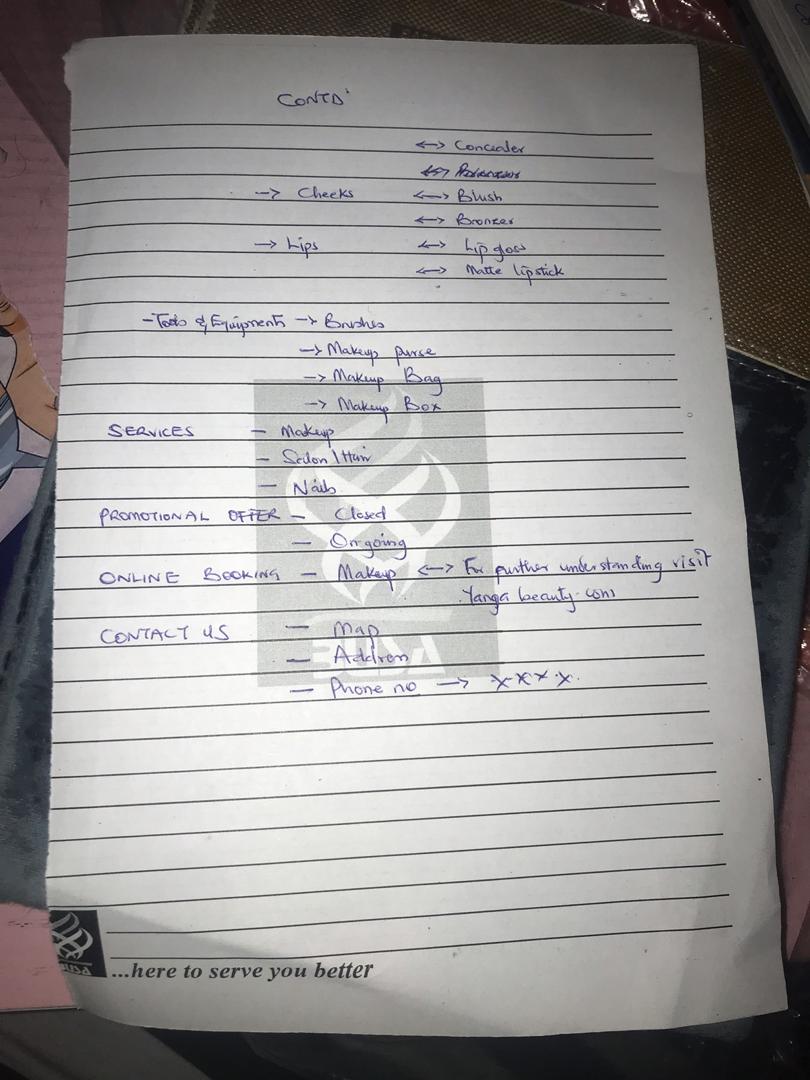 CONTD'
<-> Concealer
-> Cheeks <-> Blush
<-> Bronzer
-> Lips <-> Lip gloss
<-> Matte lipstick
- Tools & Equipments -> Brushes
-> Makeup purse
-> Makeup Bag
-> Makeup Box
SERVICES - Makeup
- Salon / Hair
- Nails
PROMOTIONAL OFFER - Closed
- Ongoing
ONLINE BOOKING - Makeup <-> For further understanding visit
Yanga beauty.com
CONTACT US - Map
- Address
- Phone no -> XXXX.
...here to serve you better